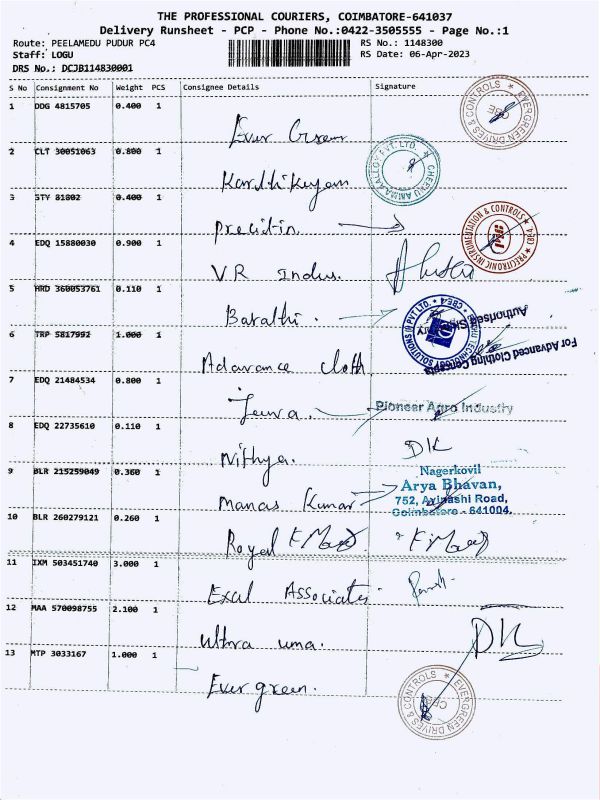 THE PROFESSIONAL COURIERS, COIMBATORE-641037
Delivery Runsheet - PCP - Phone No.:0422-3505555 - Page No.:1
Route: PEELAMEDU PUDUR PC4
RS No.: 1148300
Staff: LOGU
RS Date: 06-Apr-2023
DRS No.: DCJB114830001
S No Consignment No Weight PCS Consignee Details Signature
1 DDG 4815705 0.400 1
Ever Green
EVERGREEN DRIVES & CONTROLS * CBE
2 CLT 30051063 0.800 1
Karthikeyan
PVT. LTD. *
3 STY 81802 0.400 1
Precitin
PRECITRONIC INSTRUMENTATION & CONTROLS * CBE-4 *
4 EDQ 15880030 0.900 1
VR Indus.
5 HRD 360053761 0.110 1
Barathi.
TECHNOLOGY SOLUTIONS (I) PVT. LTD. * CBE-4 *
6 TRP 5817992 1.000 1
Advance cloth
For Advanced Clothing Concepts
Authorised Signatory
7 EDQ 21484534 0.800 1
Jeeva.
Pioneer Agro Industry
8 EDQ 22735610 0.110 1
Nithya.
DK
9 BLR 215259049 0.360 1
Manas Kumar
Nagerkovil
Arya Bhavan,
752, Avinashi Road,
Coimbatore - 641004.
10 BLR 260279121 0.260 1
Royal
11 IXM 503451740 3.000 1
Excel Associates.
12 MAA 570098755 2.100 1
Uthra uma.
DK
13 MTP 3033167 1.000 1
Ever green.
EVERGREEN DRIVES & CONTROLS * CBE